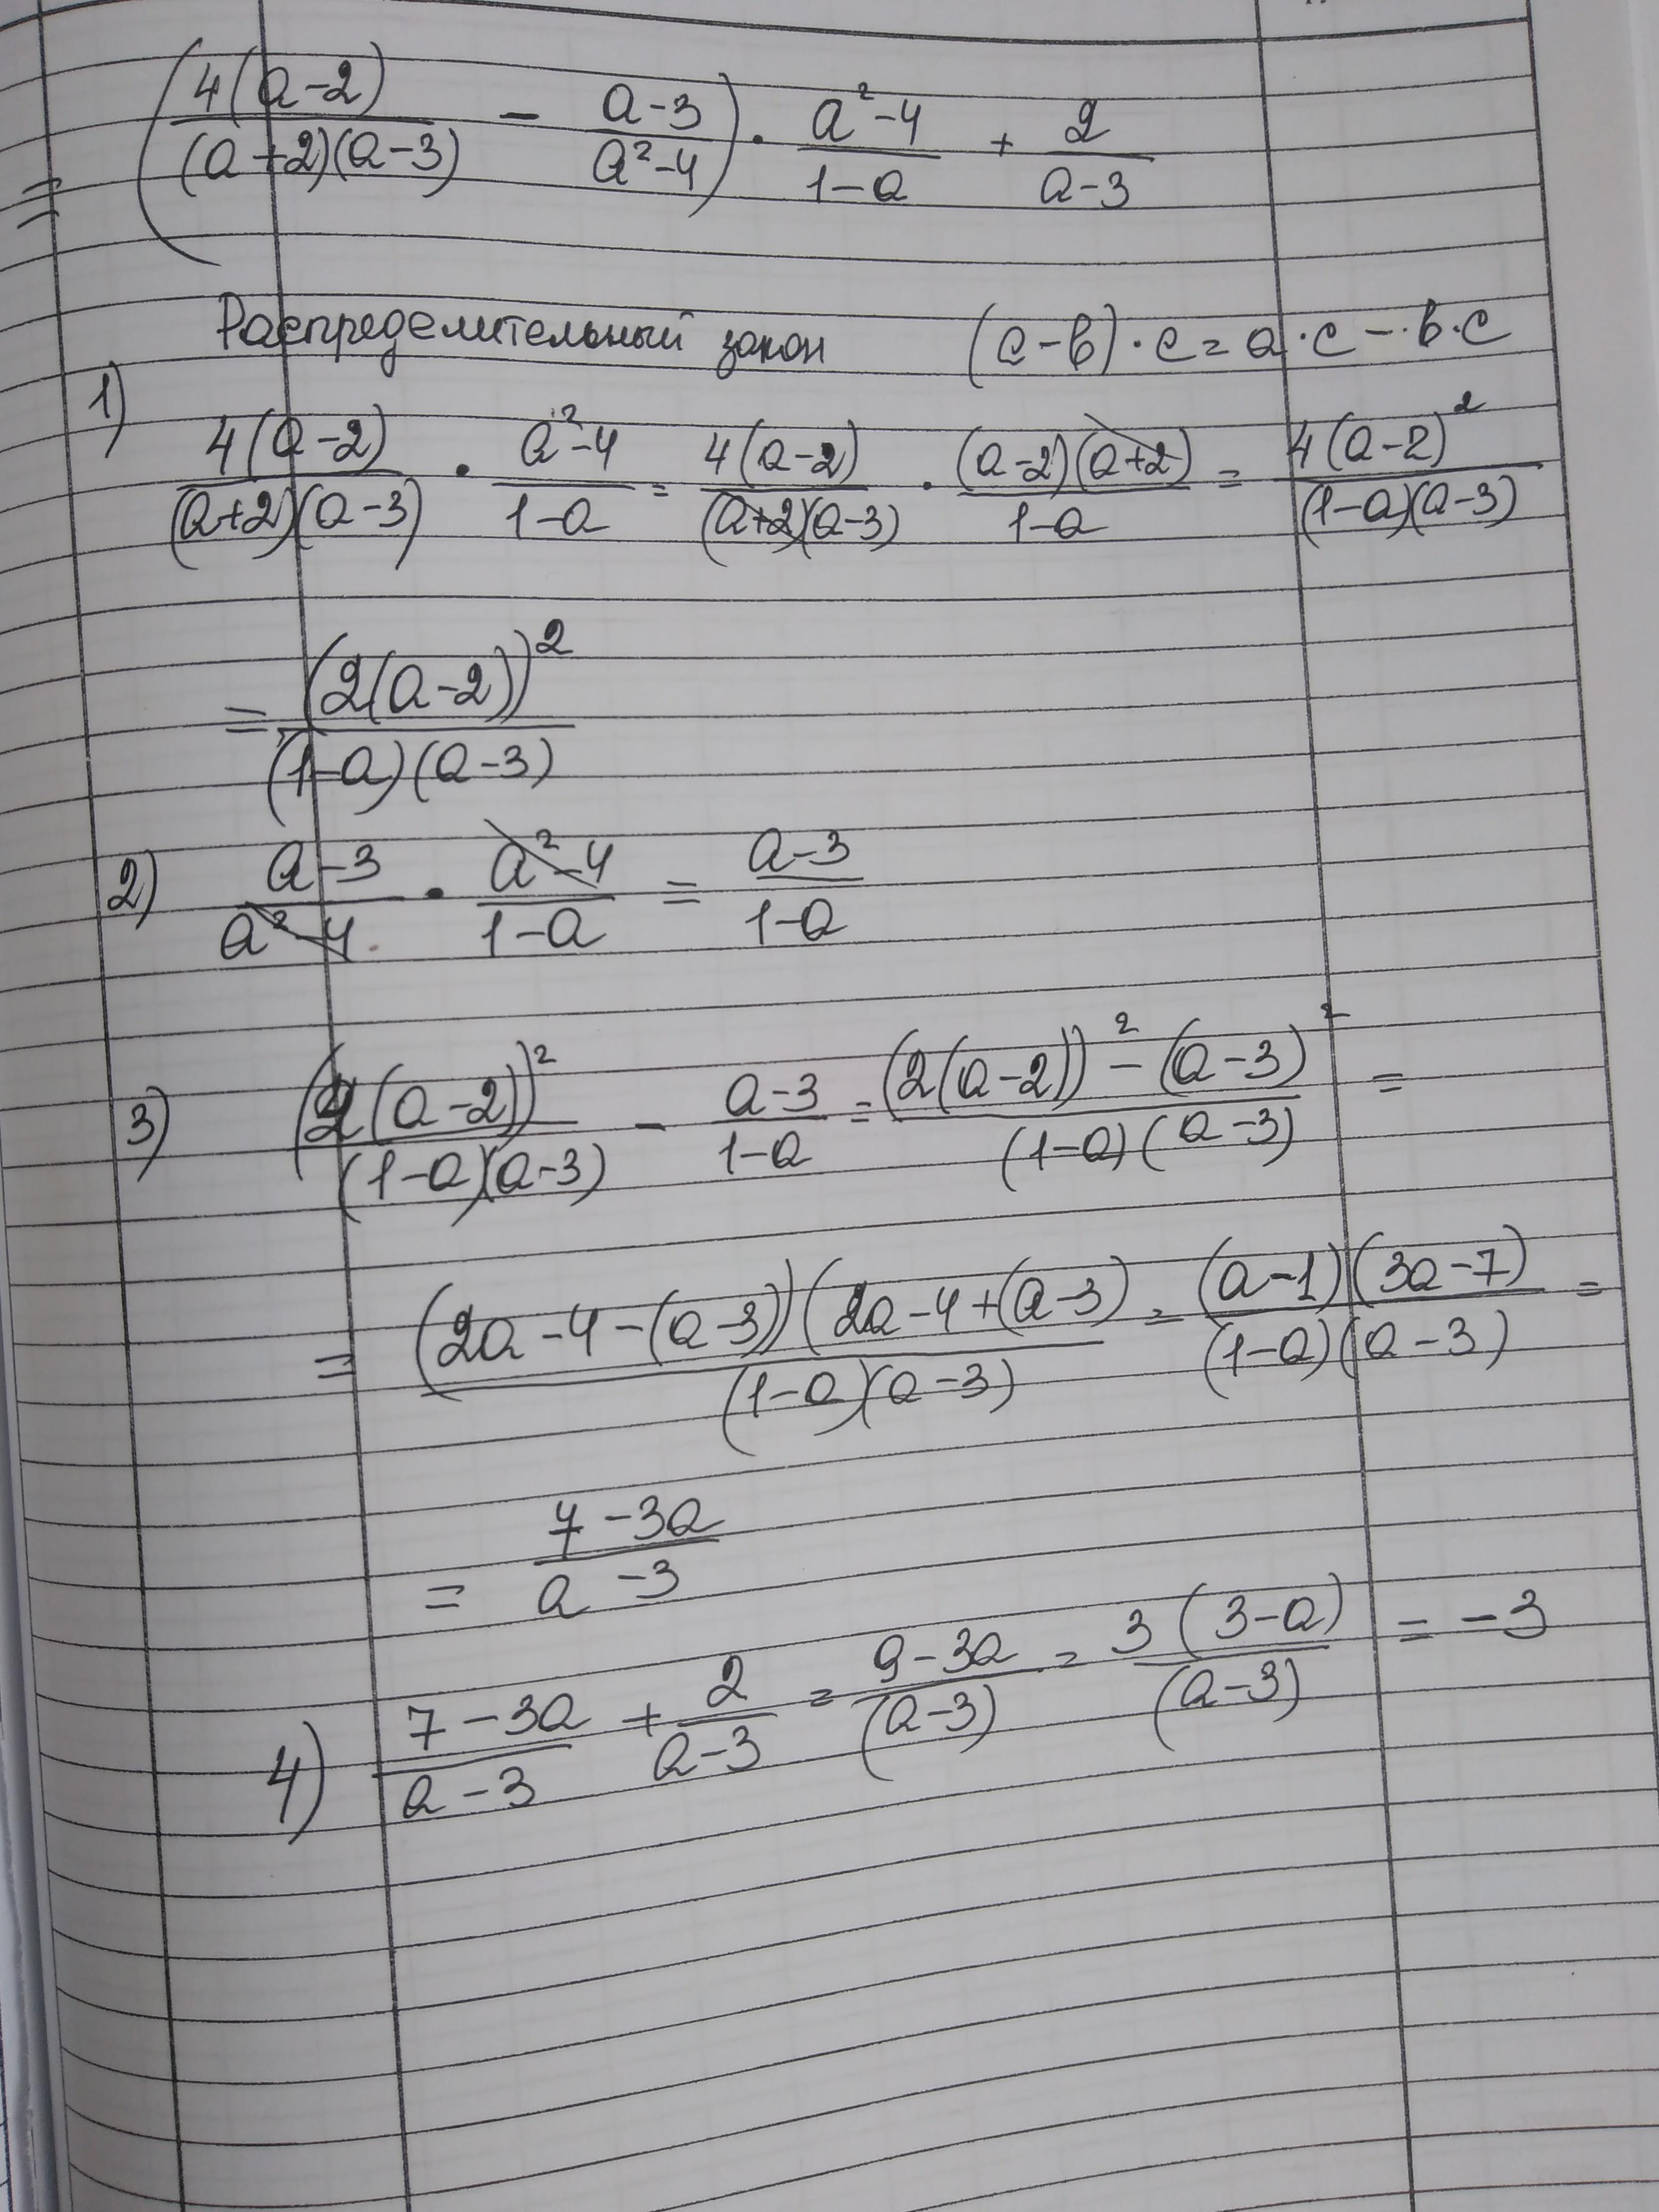 = (4(a-2)/((a+2)(a-3)) - (a-3)/(a²-4)) · (a²-4)/(1-a) + 2/(a-3)
Распределительный закон (c-b)·c=a·c-·b·c
1) 4(a-2)/((a+2)(a-3)) · (a²-4)/(1-a) = 4(a-2)/((a+2)(a-3)) · (a-2)(a+2)/(1-a) = 4(a-2)²/((1-a)(a-3))
= (2(a-2))²/((1-a)(a-3))
2) (a-3)/(a²-4) · (a²-4)/(1-a) = (a-3)/(1-a)
3) (2(a-2))²/((1-a)(a-3)) - (a-3)/(1-a) = ((2(a-2))²-(a-3)²)/((1-a)(a-3)) =
= (2a-4-(a-3))(2a-4+(a-3)/((1-a)(a-3)) = (a-1)(3a-7)/((1-a)(a-3)) =
= (7-3a)/(a-3)
4) (7-3a)/(a-3) + 2/(a-3) = (9-3a)/(a-3) = 3(3-a)/(a-3) = -3